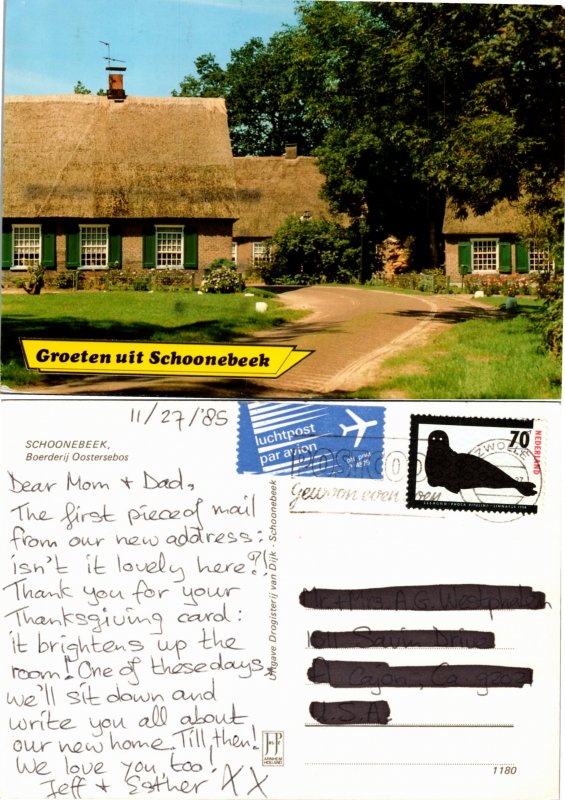 Groeten uit Schoonebeek
11/27/'85
SCHOONEBEEK,
Boerderij Oostersebos
luchtpost
par avion
70
NEDERLAND
POSTCO
Gewoon even doen
ZWOLLE
Dear Mom + Dad,
The first piece of mail
from our new address:
isn't it lovely here?!
Thank you for your
Thanksgiving card:
it brightens up the
room! One of these days,
we'll sit down and
write you all about
our new home. Till then!
We love you, too!
Jeff + Esther XX
Uitgave Drogisterij van Dijk - Schoonebeek
JosP
ARNHEM
HOLLAND
1180